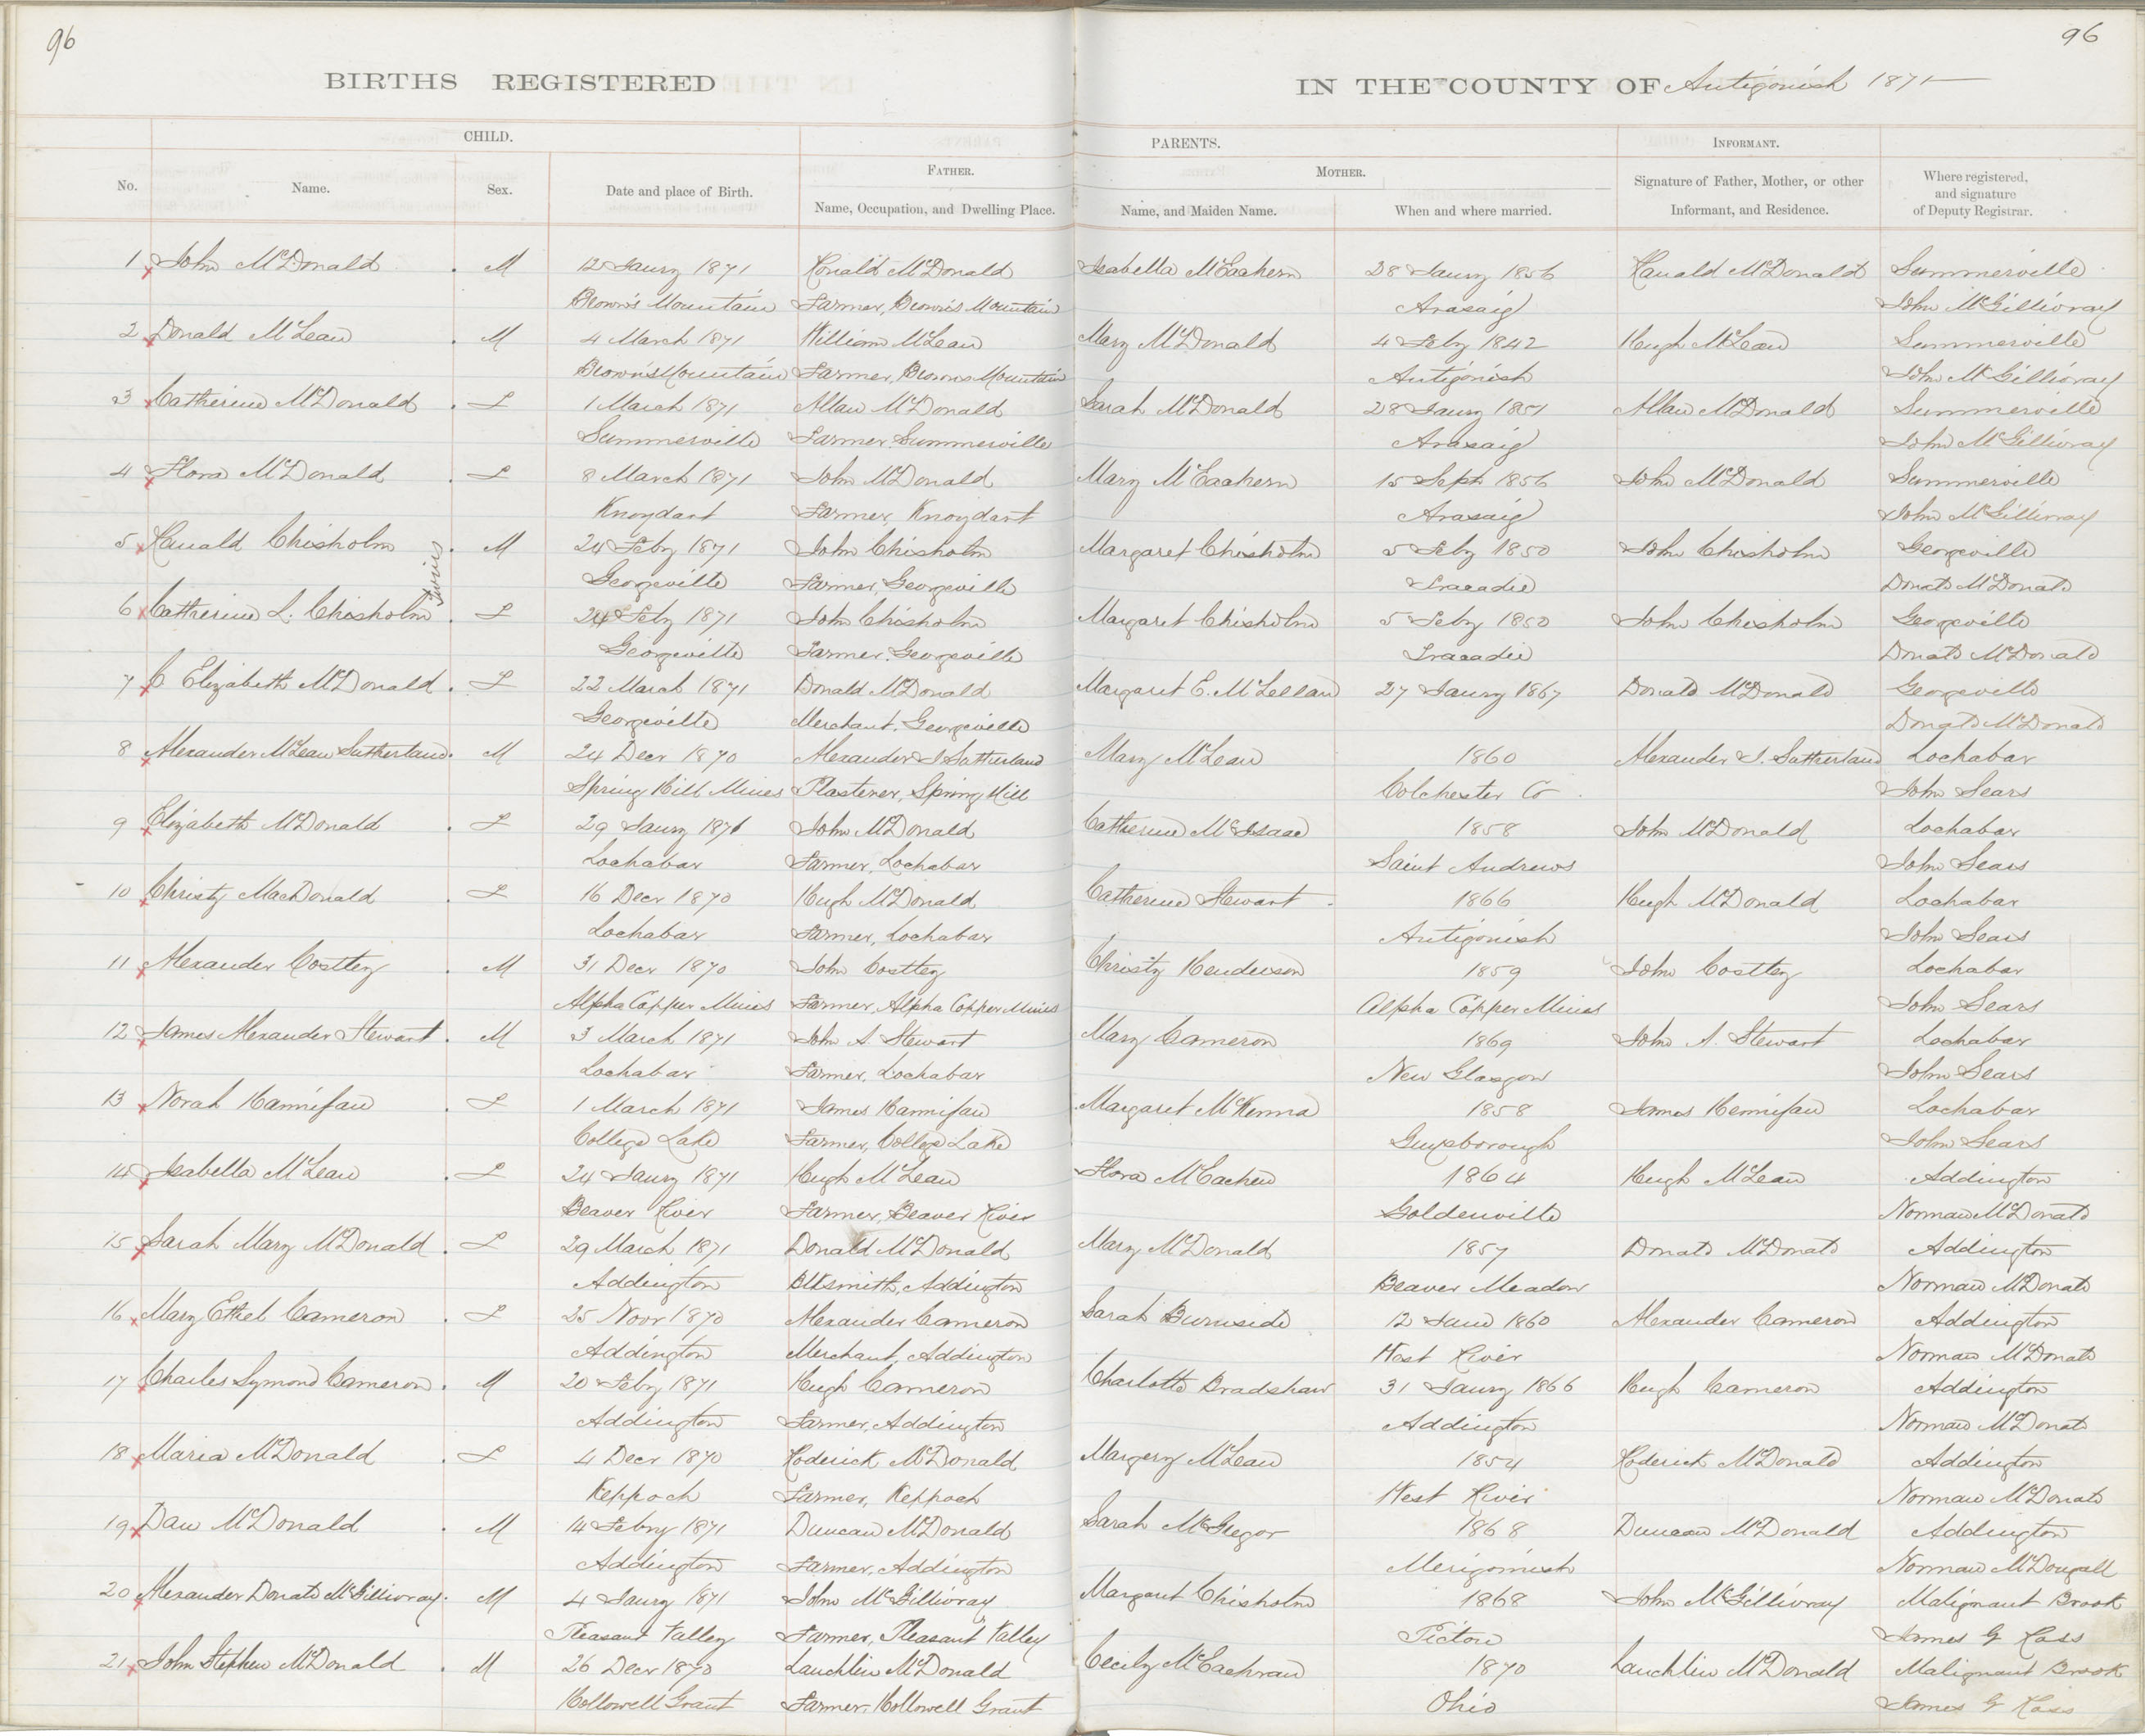 96
96
BIRTHS REGISTERED IN THE COUNTY OF Antigonish 1871
CHILD. PARENTS. INFORMANT.
FATHER. MOTHER.
No. Name. Sex. Date and place of Birth. Name, Occupation, and Dwelling Place. Name, and Maiden Name. When and where married. Signature of Father, Mother, or other Informant, and Residence. Where registered, and signature of Deputy Registrar.
1 John McDonald M 12 Jany 1871 Ronald McDonald Isabella McEachern 28 Jany 1856 Ranald McDonald Summerville
Brown's Mountain Farmer, Brown's Mountain Arasaig John McGillivray
2 Donald McLean M 4 March 1871 William McLean Mary McDonald 4 Feby 1842 Hugh McLean Summerville
Brown's Mountain Farmer, Browns Mountain Antigonish John McGillivray
3 Catherine McDonald F 1 March 1871 Allan McDonald Sarah McDonald 28 Jany 1851 Allan McDonald Summerville
Summerville Farmer Summerville Arasaig John McGillivray
4 Flora McDonald F 8 March 1871 John McDonald Mary McEachern 15 Sept 1856 John McDonald Summerville
Knoydart Farmer, Knoydart Arasaig John McGillivray
5 Ranald Chisholm M 24 Feby 1871 John Chisholm Margaret Chisholm 5 Feby 1850 John Chisholm Georgeville
twins
Georgeville Farmer, Georgeville Tracadie Donald McDonald
6 Catherine L. Chisholm F 24 Feby 1871 John Chisholm Margaret Chisholm 5 Feby 1850 John Chisholm Georgeville
Georgeville Farmer. Georgeville Tracadie Donald McDonald
7 C Elizabeth McDonald F 22 March 1871 Donald McDonald Margaret E. McLellan 27 Jany 1867 Donald McDonald Georgeville
Georgeville Merchant, Georgeville Donald McDonald
8 Alexander McLean Sutherland M 24 Decr 1870 Alexander J Sutherland Mary McLean 1860 Alexander J. Sutherland Lochabar
Spring Hill Mines Plasterer, Spring Hill Colchester Co John Sears
9 Elizabeth McDonald F 29 Jany 1871 John McDonald Catherine McIsaac 1858 John McDonald Lochabar
Lochabar Farmer, Lochabar Saint Andrews John Sears
10 Christy MacDonald F 16 Decr 1870 Hugh McDonald Catherine Stewart 1866 Hugh McDonald Lochabar
Lochabar Farmer, Lochabar Antigonish John Sears
11 Alexander Costley M 31 Decr 1870 John Costley Christy Henderson 1859 John Costley Lochabar
Alpha Copper Mines Farmer, Alpha Copper Mines Alpha Copper Mines John Sears
12 James Alexander Stewart M 3 March 1871 John A. Stewart Mary Cameron 1869 John A. Stewart Lochabar
Lochabar Farmer, Lochabar New Glasgow John Sears
13 Norah Hannifan F 1 March 1871 James Hannifan Margaret McKenna 1858 James Hennifan Lochabar
College Lake Farmer, College Lake Guysborough John Sears
14 Isabella McLean F 24 Jany 1871 Hugh McLean Flora McEachen 1864 Hugh McLean Addington
Beaver River Farmer, Beaver River Goldenville Norman McDonald
15 Sarah Mary McDonald F 29 March 1871 Donald McDonald Mary McDonald 1857 Donald McDonald Addington
Addington Blksmith, Addington Beaver Meadow Norman McDonald
16 Mary Ethel Cameron F 25 Novr 1870 Alexander Cameron Sarah Burnside 12 June 1860 Alexander Cameron Addington
Addington Merchant, Addington West River Norman McDonald
17 Charles Symond Cameron M 20 Feby 1871 Hugh Cameron Charlotte Bradshaw 31 Jany 1866 Hugh Cameron Addington
Addington Farmer, Addington Addington Norman McDonald
18 Maria McDonald F 4 Decr 1870 Roderick McDonald Margery McLean 1854 Roderick McDonald Addington
Keppoch Farmer, Keppoch West River Norman McDonald
19 Dan McDonald M 14 Febry 1871 Duncan McDonald Sarah McGregor 1868 Duncan McDonald Addington
Addington Farmer, Addington Merigomish Norman McDougall
20 Alexander Donald McGillivray M 4 Jany 1871 John McGillivray Margaret Chisholm 1868 John McGillivray Malignant Brook
Pleasant Valley Farmer, Pleasant Valley Pictou James G Ross
21 John Stephen McDonald M 26 Decr 1870 Lauchlin McDonald Cecily McEachran 1870 Lauchlin McDonald Malignant Brook
Hollowell Grant Farmer, Hollowell Grant Ohio James G Ross